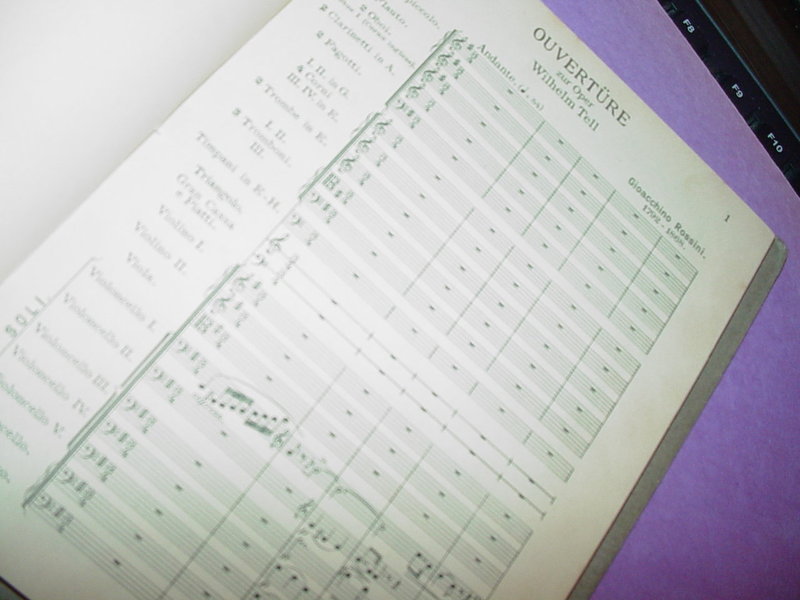 F8
F9
F10
OUVERTÜRE
zur Oper
Wilhelm Tell
Gioacchino Rossini.
1792-1868.
1
Andante.
2 Oboi.
2 Clarinetti in A.
2 Fagotti.
I. II. in G.
4 Corni
III. IV. in E.
2 Trombe in E.
I. II.
3 Tromboni.
III.
Timpani in E. H.
Triangolo.
Gran Cassa
e Piatti.
Violino I.
Violino II.
Viola.
SOLI.
Violoncello I.
Violoncello II.
Violoncello III.
Violoncello IV.
Violoncello V.